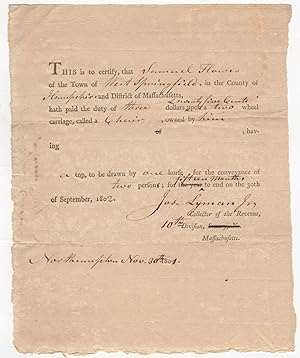 THIS is to certify, that Samuel Flower
of the Town of West Springfield, in the County
of Hampshire and District of Massachusetts,
& twenty five Cents
hath paid the duty of three dollars upon a two wheel
carriage, called a Chaise, owned by him
of , hav-
ing
a top, to be drawn by one horse, for the conveyance
fifteen Months
of two persons; for the year to end on the 30th
of September, 1802.
Jos. Lyman Jr
Collector of the Revenue,
10th Division,
Massachusetts.
Northampton Nov. 30th 1801.